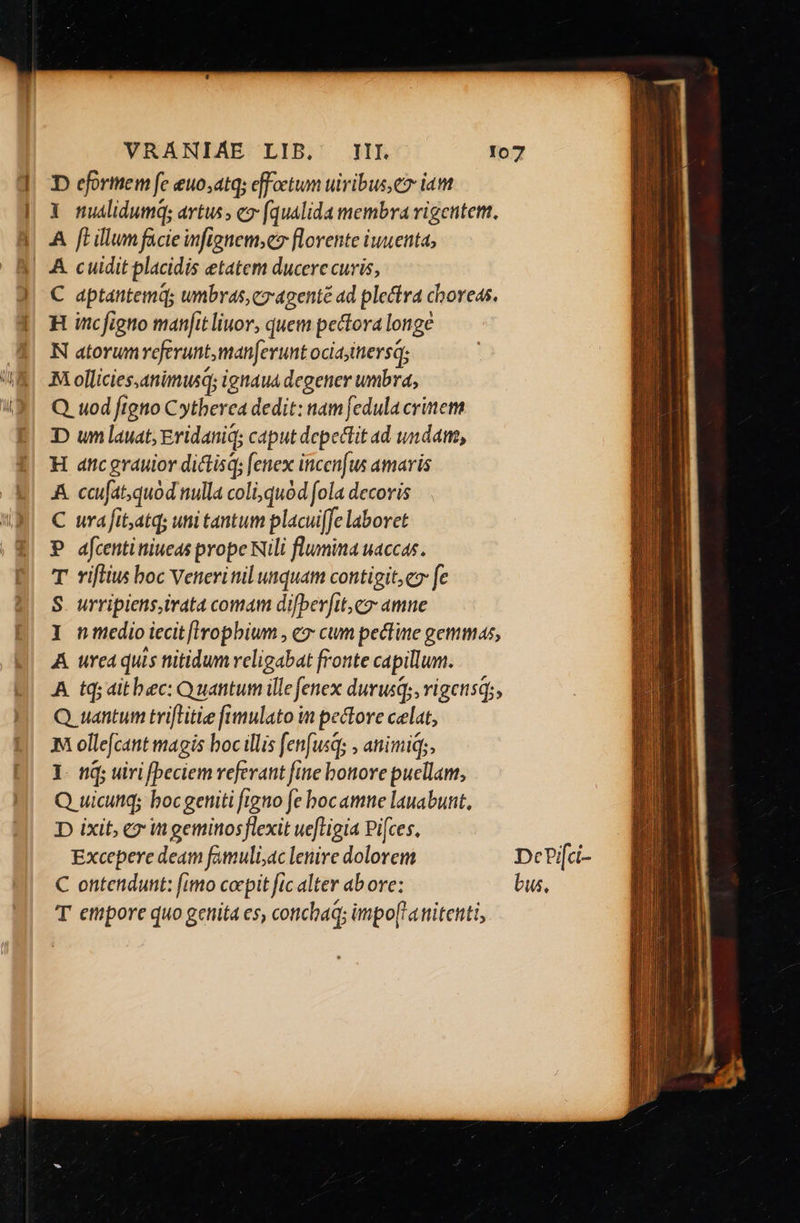 VRANIAE LIB. III. 107
D eformem ſe æuo,atq; effœtum uiribus,et iam
I nualidumq́; artus, et ſqualida membra rigentem.
A ſt illum facie inſignem,et florente iuuenta,
A cuidit placidis ætatem ducere curis,
C aptantemq́; umbras,et agentē ad plectra choreas.
H inc ſigno manſit liuor, quem pectora longè
N atorum referunt,manſerunt ocia,inersq́;
M ollicies,animusq́; ignaua degener umbra,
Q uod ſigno Cytherea dedit: nam ſedula crinem
D um lauat, Eridaniq́; caput depectit ad undam,
H anc grauior dictisq́; ſenex incenſus amaris
A ccuſat,quòd nulla coli,quòd ſola decoris
C ura ſit,atq; uni tantum placuiſſe laboret
P aſcenti niueas prope Nili flumina uaccas.
T riſtius hoc Veneri nil unquam contigit, et ſe
S urripiens,irata comam diſperſit,et amne
I n medio iecit ſtrophium , et cum pectine gemmas,
A urea quis nitidum religabat fronte capillum.
A tq; ait hæc: Quantum ille ſenex durusq́;, rigensq́;,
Q uantum triſtitiæ ſimulato in pectore cælat,
M olleſcant magis hoc illis ſenſusq́; , animiq́;,
I nq́; uiri ſpeciem referant ſine honore puellam,
Q uicunq; hoc geniti ſigno ſe hoc amne lauabunt.
D ixit, et in geminos flexit ueſtigia Piſces.
Excepere deam famuli,ac lenire dolorem De Piſci-
C ontendunt: ſimo cœpit ſic alter ab ore: bus.
T empore quo genita es, conchaq́; impoſta nitenti,